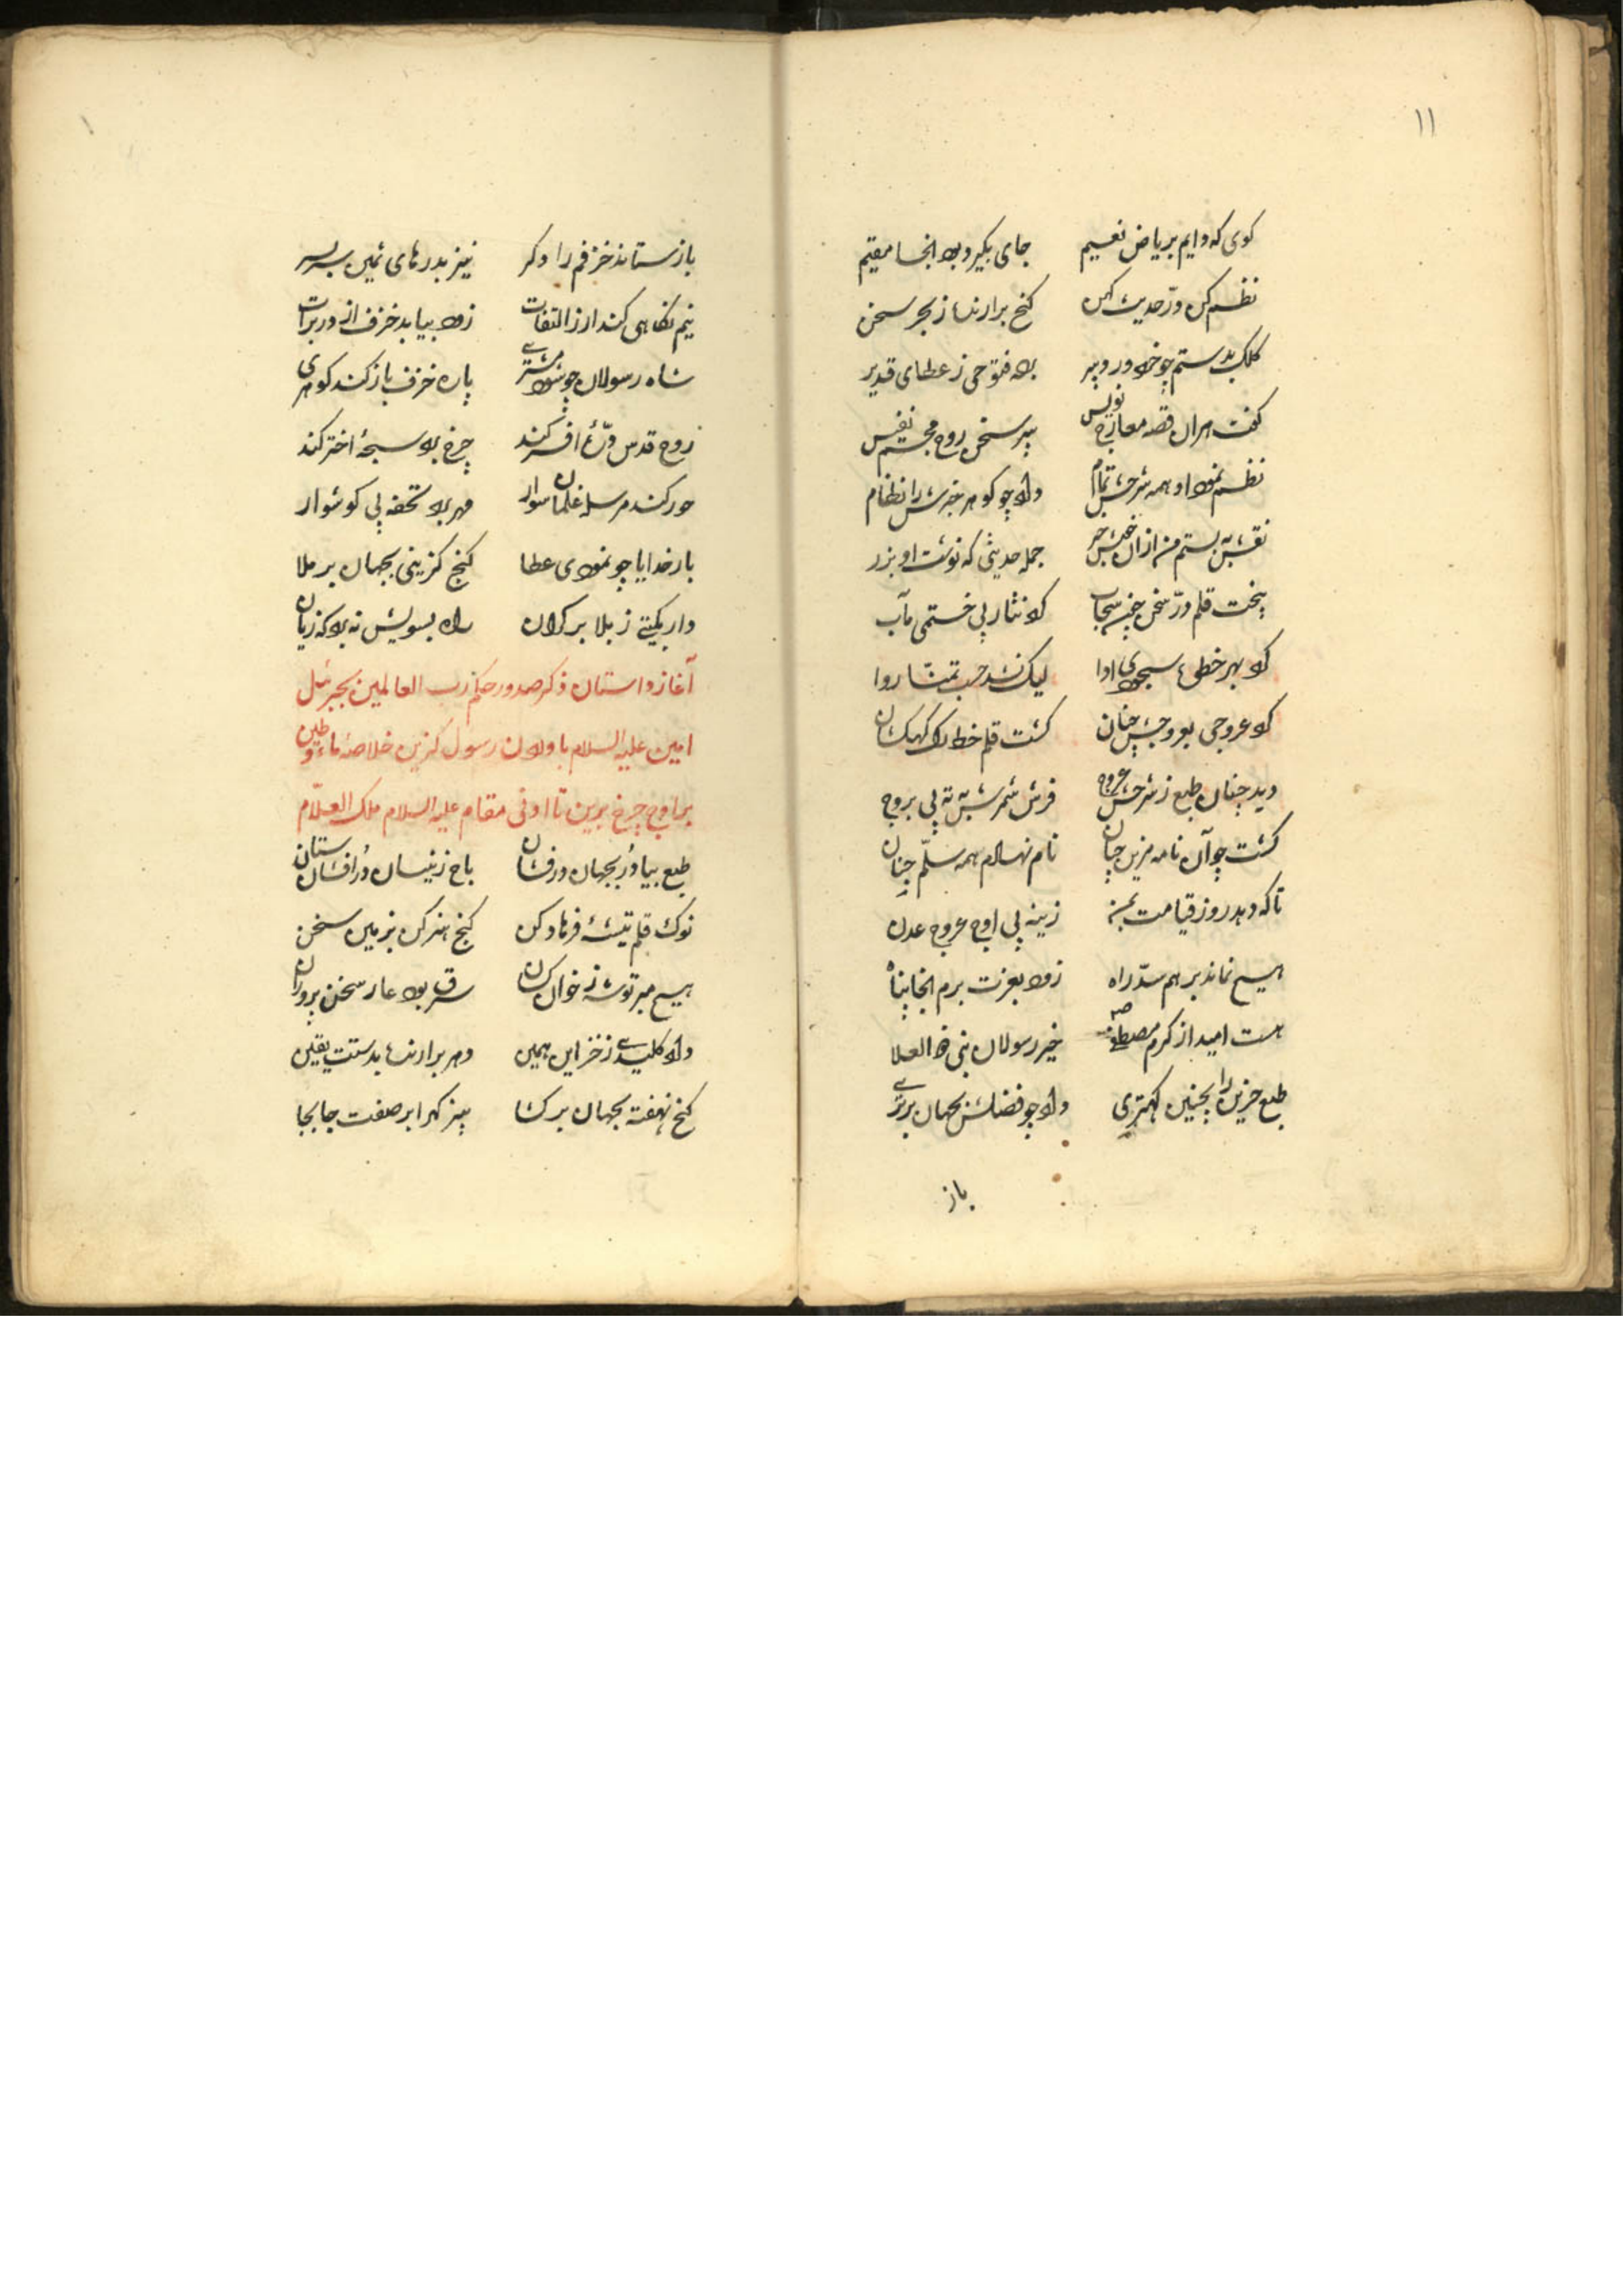 ۱۱
کوی که دایم بریاض نعیم جای بگیرد بود انجا مقیم
نظم کن درّ حدیث کهن کنج برارند ز بحر سخن
کلک بدستم چو خرد ور دبیر بود فتوحی ز عطای قدیر
کفت هران قصه معارج نویس پیر سخن روح مجسم نفیس
نظم نمود او همه شرحش تمام داد چو کوهر خبرش را نظام
نقش به بستم من ازان جمله حدیثی که نوشت او بزر
پخت قلم درّ سخن چون سحاب کرد نثار پی ختمی مآب
کرد بهر خطی سجودی ادا لیک نشد حسب تمنا روا
کرد عروجی بعروجش چنان کشت قلم خط ره کهکشان
دید چنان طبع ز شرحش عروج فرش ثمر شبه پی بروج
کشت چو آن نامه مزین چنان نام نهادم همه سلّم چنان
تا که دهد روز قیامت بمن زینه پی اوج عروج عدن
هیچ نماند برهم سدّ راه زود بعزت برم انجا پناه
هست امید از کرم مصطفی خیر رسولان نبی ذو العلا
طبع حزین را بچنین کهتری داد چو فضلش بجهان برتری
باز
باز ستاند خزفم را دکر نیز بدرهای ثمین سربسر
نیم نکاهی کند ار ز التفات زود بیابد خزف از در برات
شاه رسولان چو شود مشتری پاره خزف باز کند کوهری
روح قدس درّة افسر کند چرخ برو سبحهٔ اختر کند
حور کند مرسله غلمان سوار مهر برد تحفه پی کوشوار
بار خدایا چو نمودی عطا کنج کزینی بجهان برملا
دار بکیتی ز بلا بر کران راه بسویش نه برد که زیان
آغاز داستان ذکر صدور حکم رب العالمین بجبرئیل
امین علیه السلام باوردن رسول کزین خلاصهٔ ماء و طین
بر اوج چرخ برین تا ادنی مقام علیه السلام ملک العلّام
طبع بیا دُر بجهان در فشان باج ز نیسان دُر افشان ستان
نوک قلم تیشهٔ فرهاد کن کنج هنر کن بزمین سخن
هیچ مبر توشه ز خوان کسان سرق بود عار سخن پروران
داد کلیدی ز خزاین همین دهر برارند بدستت یقین
کنج نهفته بجهان برکشا بیز کهر ابر صفت جابجا